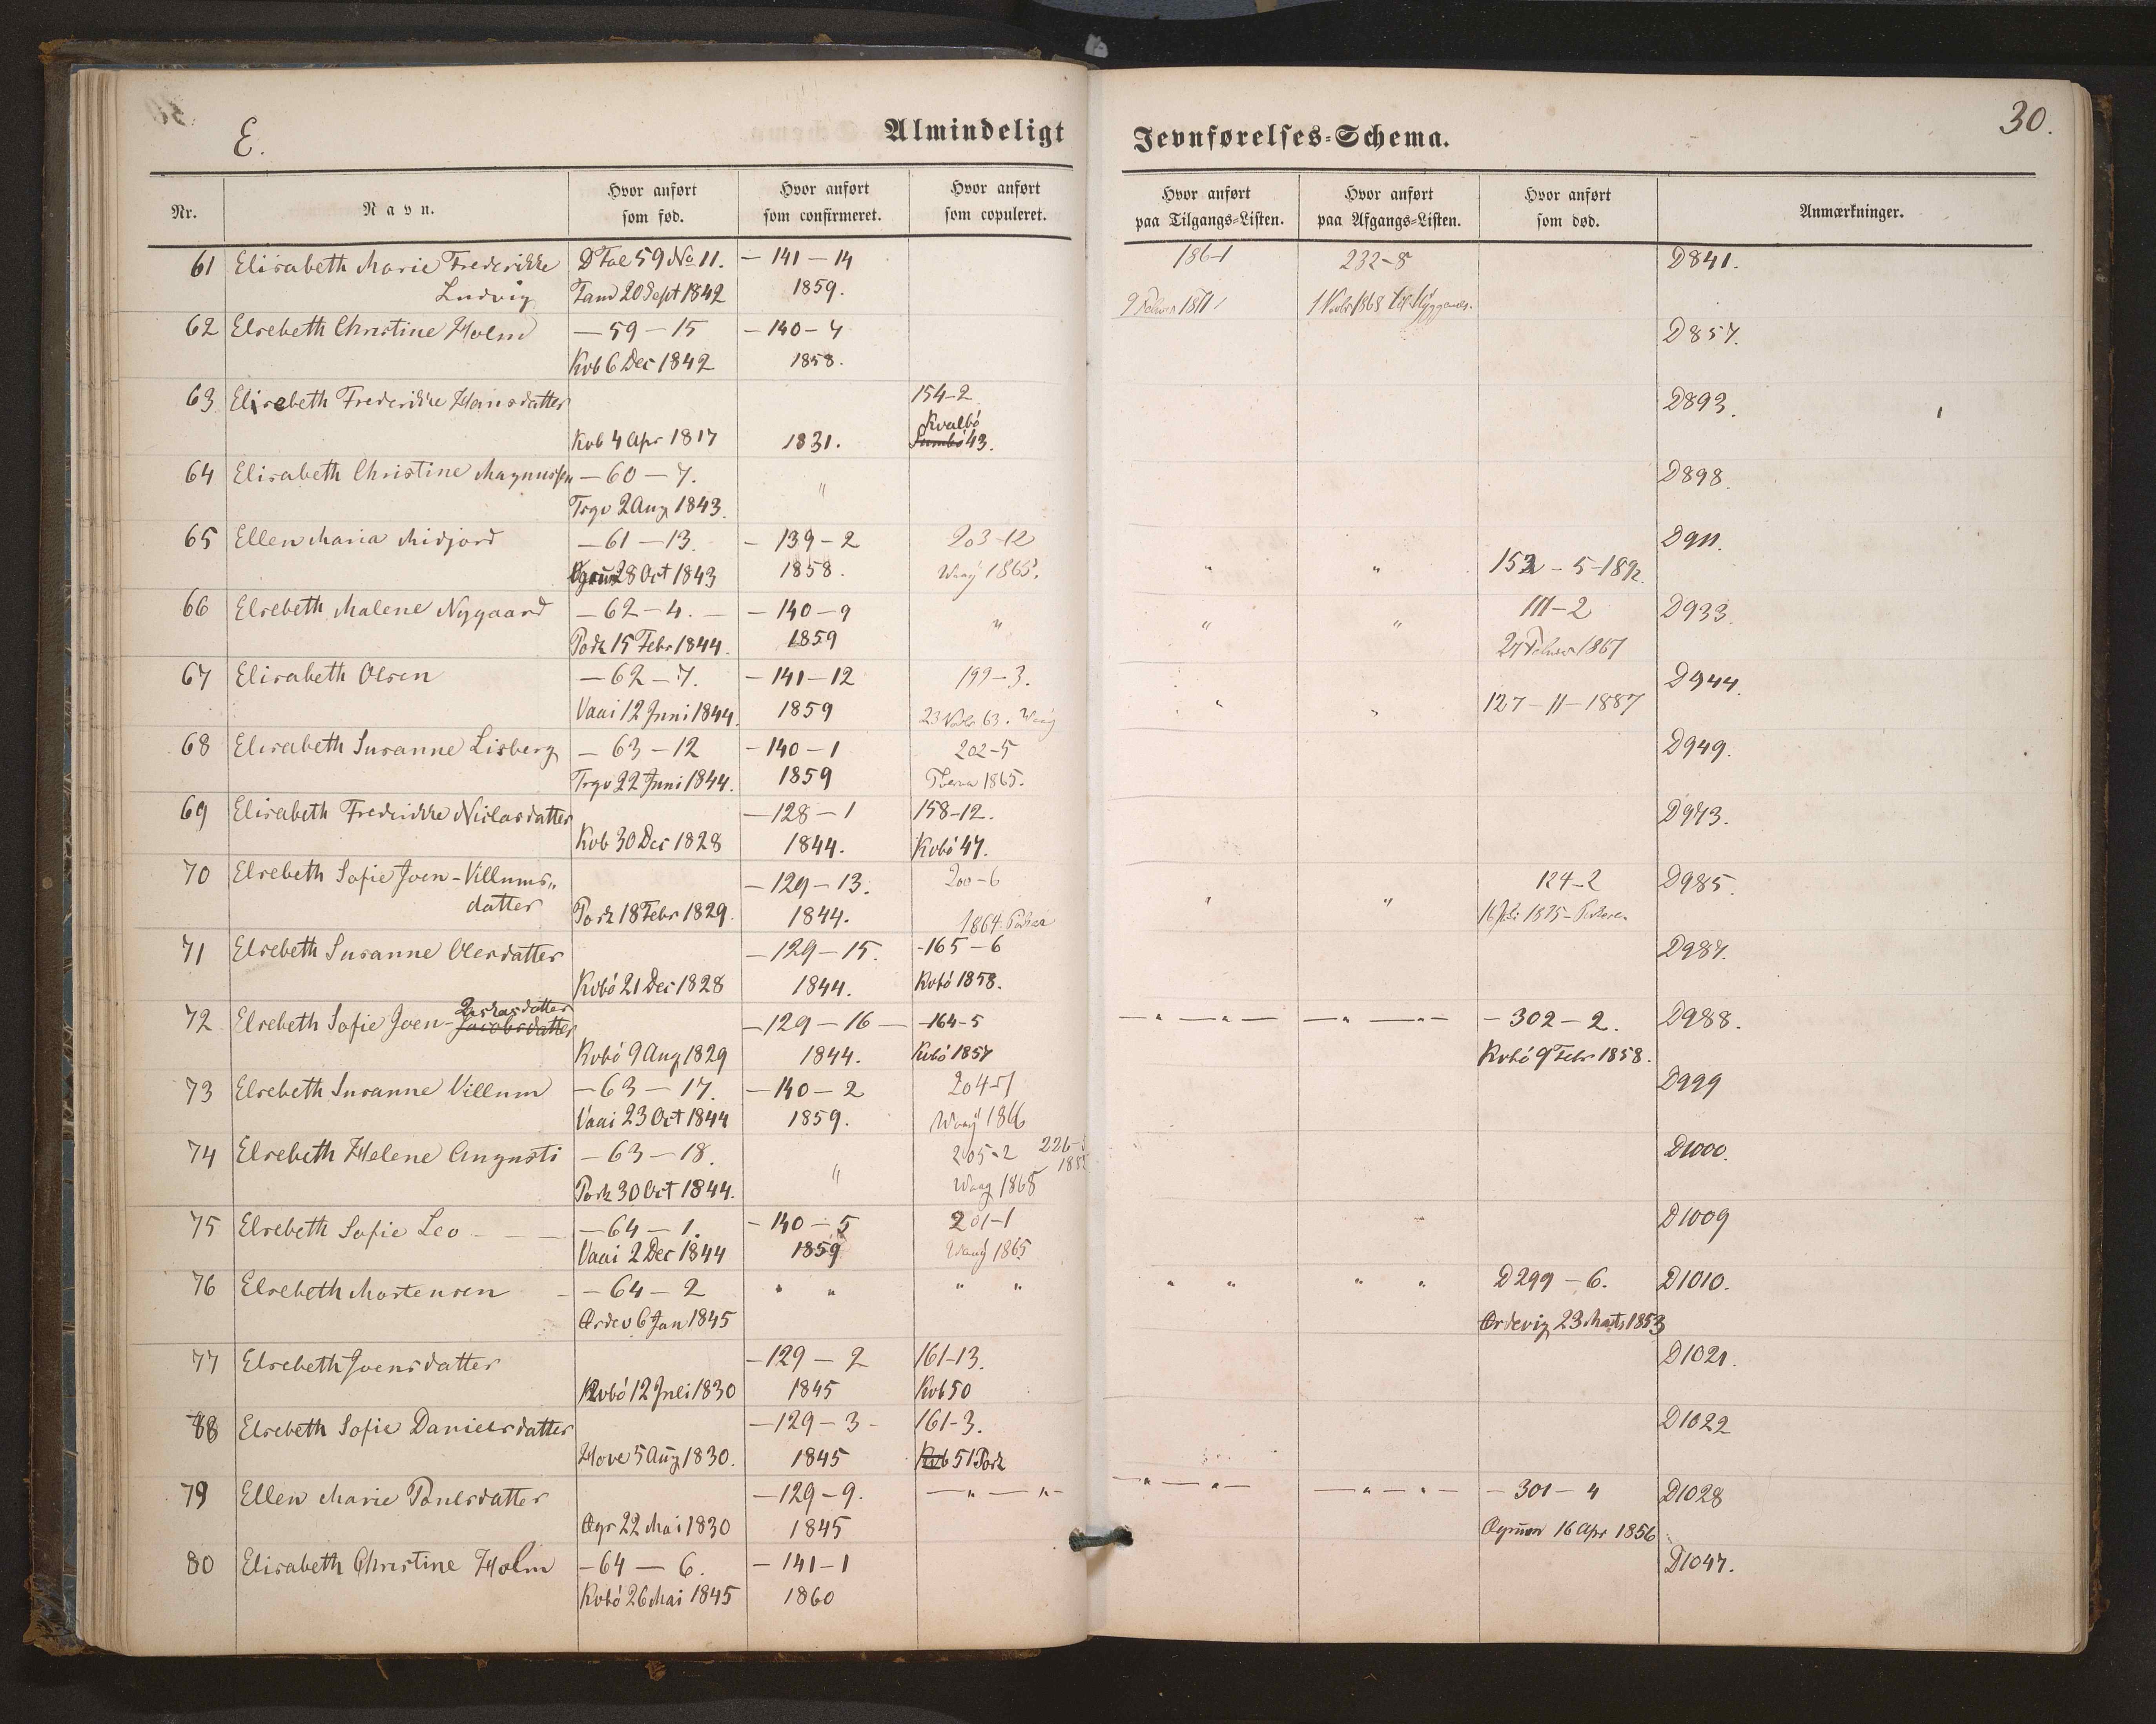 E.
Almindeligt Jevnførelses-Schema.
30.
Nr.
Navn.
Hvor anført som fød.
Hvor anført som confirmeret.
Hvor anført som copuleret.
Hvor anført paa Tilgangs-Listen.
Hvor anført paa Afgangs-Listen.
Hvor anført som død.
Anmærkninger.
61 Elisabeth Marie Frederikke D Fol 59 No 11. — 141 — 14 186-1 232-8 D841.
Ludvig Fand 20 Sept 1842 1859. 1868
62 Elsebeth Christine Holm — 59 — 15 — 140 - 4 D857.
Kvb 6 Dec 1842 1858.
63 Elisebeth Frederikke Hansdatter 154-2 D893.
Kvalbö
Kvb 4 Apr 1817 1831. Sumbö 43.
64 Elisabeth Christine Magnussen — 60 — 7. " D898.
Trgv 2 Aug 1843.
65 Ellen Maria Midjord — 61 — 13. — 139 - 2 203-12 " " 152 - 5-1892. D911.
28 Oct 1843 1858. Waag 1865.
66 Elsebeth Malene Nygaard — 62 - 4. — — 140 — 9 " " " 111-2 D933.
Pork 15 Febr 1844. 1859 1867
67 Elisabeth Olsen — 62 — 7. — 141 — 12 199-3. " " 127 - 11 - 1887 D944.
Vaai 12 Juni 1844. 1859 23 Novbr 63. Waag
68 Elisabeth Susanne Lisberg — 63 — 12 — 140 — 1 202-5 D949.
Trgv 22 Juni 1844. 1859 1865.
69 Elisabeth Frederikke Niclasdatter — 128 — 1 158-12. D973.
Kvb 30 Dec 1828 1844. Kvbö 47.
70 Elsebeth Sofie Joen-Villums" — 129 — 13. 200-6 " " 124-2 D985.
datter Pork 18 Febr 1829. 1844. 1864. 1875
71 Elsebeth Susanne Olesdatter — 129 — 15. -165 - 6 D987.
Kvbö 21 Dec 1828 1844. Kvbö 1858.
72 Elsebeth Sofie Joen-Jacobsdatter — 129 — 16 — -164-5 — " — " — — " — " — - 302 - 2. D988.
Kvbö 9 Aug 1829 1844. Kvbö 1857 Kvbö 9 Febr 1858.
73 Elsebeth Susanne Villum — 63 — 17. — 140 - 2 204-7 D999
Vaai 23 Oct 1844 1859. Waag 1866
74 Elsebeth Helene Augusti — 63 — 18. " 205-2 D1000.
Pork 30 Oct 1844. Waag 1868
75 Elsebeth Sofie Leo — 64 — 1. - 140 - 5 201-1 D1009
Vaai 2 Dec 1844 1859 Waag 1865
76 Elsebeth Mortensen — 64 — 2 " " " " " " " " D299 - 6. D1010.
Ördev 6 Jan 1845 Ördevig 23 Marts 1853
77 Elsebeth Joensdatter — 129 — 2 161-13. D1021.
Kvbö 12 Juli 1830 1845 Kvb 50
88 Elsebeth Sofie Danielsdatter — 129 - 3 - 161-3. D1022
Hove 5 Aug 1830. 1845 Kvb 51 Pork
79 Ellen Marie Poulsdatter — 129 - 9. — " — " — — " — " — — " — " — - 301 - 4 D1028
Ögr 22 Mai 1830 1845 16 Apr 1856
80 Elisabeth Christine Holm — 64 — 6. — 141-1 D1047.
Kvbö 26 Mai 1845 1860